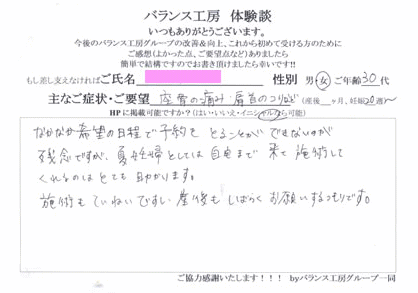 バランス工房 体験談
いつもありがとうございます。
今後のバランス工房グループの改善&向上、これから初めて受ける方のために
ご感想(よかった点、ご要望点など)ありましたら
簡単で結構ですのでお書き頂けましたら幸いです!!
もし差し支えなければご氏名 性別 男・女 ご年齢30代
主なご症状・ご要望 座骨の痛み・肩首のコリなど (産後 ヶ月、妊娠20週〜)
HPに掲載可能ですか?(はい・いいえ・イニシャルなら可能)
なかなか希望の日程で予約をとることができないのが
残念ですが、妊婦としては自宅まで来て施術して
くれるのはとても助かります。
施術もていねいですし産後もしばらくお願いするつもりです。
ご協力感謝いたします!!! byバランス工房グループ一同